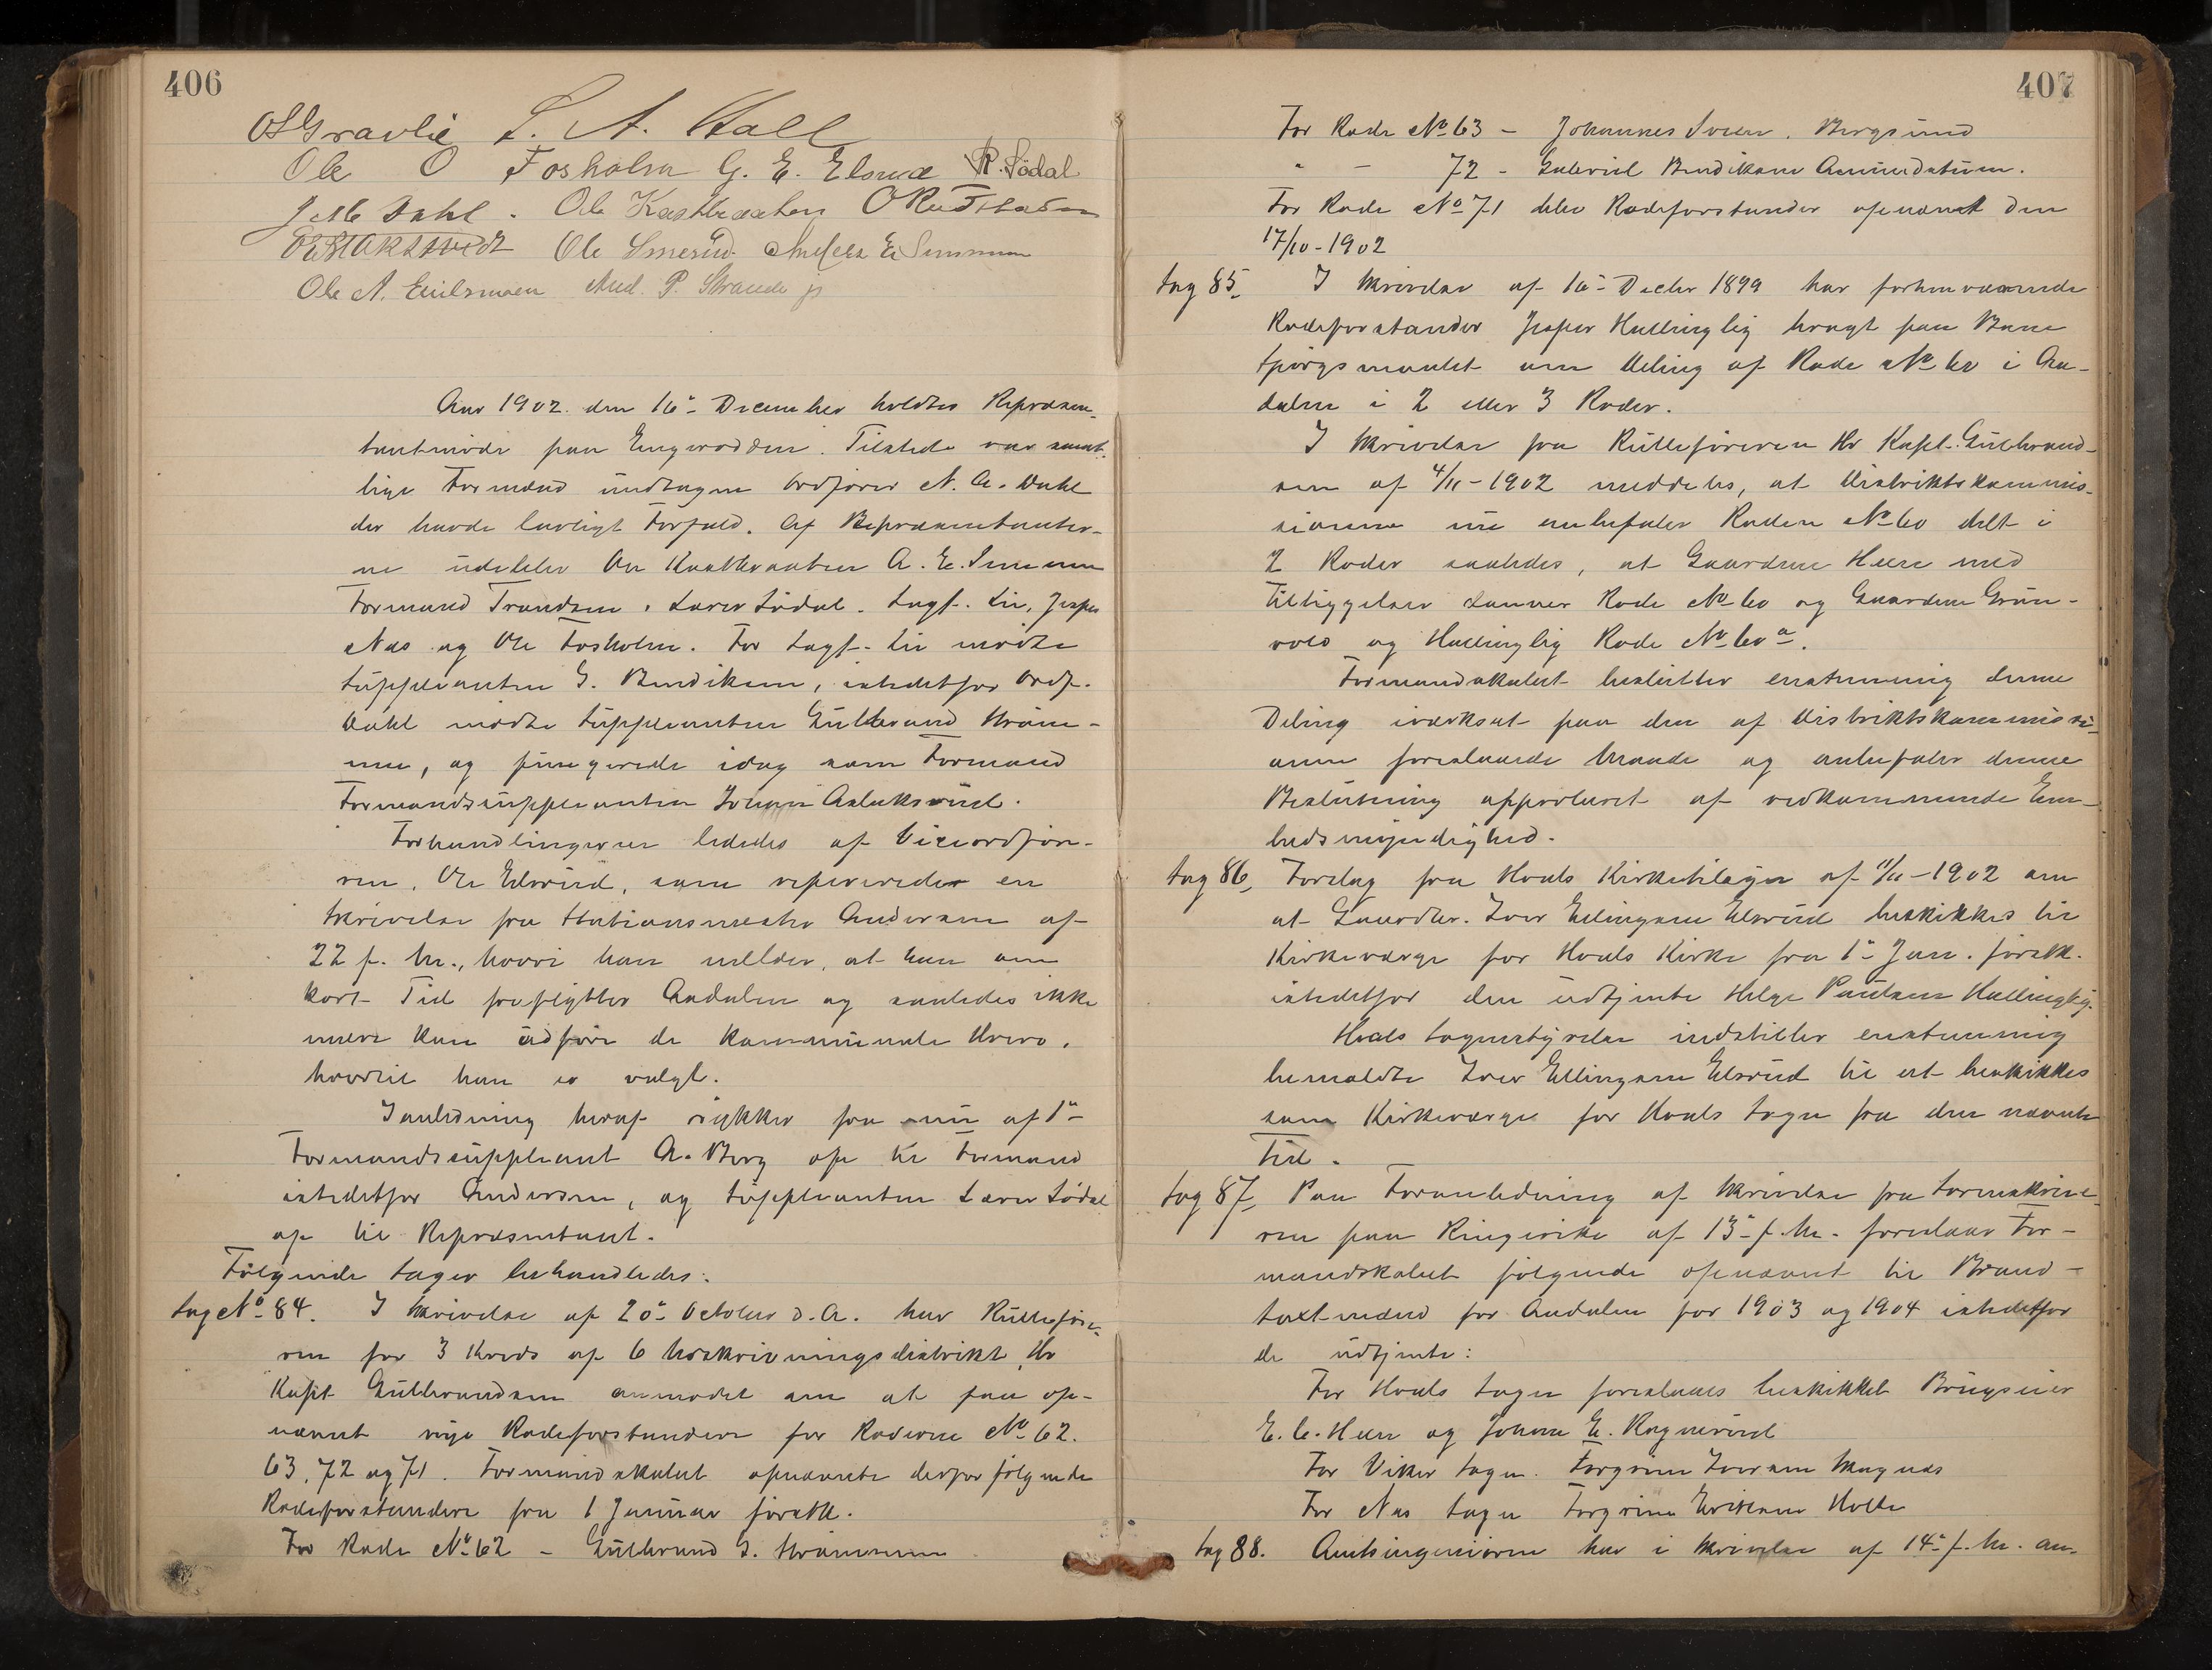 406
O S Gravlie L. A. Hall
Ole O Fosholm G. E. Elsrud R. Södal
J. M. Dahl. Ole Kastbraaten O Rustebakke
Ole Smerud. Anders E. Simensen
Ole A. And. P. Strande jr
Aar 1902 den 16de December holdtes Repræsen-
tantmöde paa Engerodden. Tilstede var samt-
lige Formænd undtagen Ordförer N. A. Dahl
der havde lovligt Forfald. Af Repræsentanter-
ne udeblev Ole Kastbraaten A. E. Simensen
Formand Trondsen, Lærer Södal. Sagf. Lie, Jesper
Næs og Ole Fosholm. For Sagf. Lie mödte
Suppleanten G. Bendiksen, istedetfor Ordf.
Dahl mödte Suppleanten Gulbrand Ström-
men, og fungerede idag som Formand
Formandssuppleanten Johan Aslaksrud.
Forhandlingerne lededes af Viceordföre-
ren, Ole Elsrud, som refererede en
Skrivelse fra Stationsmester Andersen af
22 f. M., hvori han melder, at han om
kort Tid fraflytter Aadalen og saaledes ikke
mere kan udföre de kommunale Hverv,
hvortil han er valgt.
I anledning heraf rykker fra nu af 1ste
Formandssuppleant A. Berg op til Formand
istedetfor Andersen, og Suppleanten Lærer Södal
op til Repræsentant.
Fölgende Sager behandledes:
Sag No 84. I Skrivelse af 20de October d. A. har Rulleföre-
ren for 3 Kreds af 6 Udskrivningsdistrikt, Hr
Kapt Gulbrandsen anmodet om at faa op-
nævnt nye Rodeforstandere for Roderne No 62.
63, 72 og 71. Formandskabet opnævnte derfor fölgende
Rodeforstandere fra 1 Januar förstk.
For Rode No 62 – Gulbrand G. Strömmen
407
For Rode No 63 – Johannes Sveen, Bergsund
" – 72 – Gabriel Bendiksen
For Rode No 71 blev Rodeforstander opnævnt den
17/10-1902
Sag 85. I Skrivelse af 16de Decbr 1899 har forhenværende
Rodeforstander Jesper Hallingby bragt paa Bane
Spörgsmaalet om Deling af Rode No 60 i Aa-
dalen i 2 eller 3 Roder.
I Skrivelse fra Rulleföreren Hr Kapt. Gulbrand-
sen af 4/11-1902 meddeles, at Distriktskommis-
sionen nu anbefaler Roden No 60 delt i
2 Roder saaledes, at Gaardene Heen med
Tilliggelser danner Rode No 60 og Gaardene Grön-
vold og Hallingby Rode No 60 a.
Formandskabet beslutter enstemmig denne
Deling iværksat paa den af Distriktskommissi-
onen foreslaaede Maade og anbefaler denne
Beslutning approberet af vedkommende Em-
bedsmyndighed.
Sag 86, Forslag fra Hvals Kirketilsyn af 11/11-1902 om
at Gaardbr. Iver Ellingsen Elsrud beskikkes til
Kirkeværge for Hvals Kirke fra 1ste Jan. förstk.
istedetfor den udtjente Helge Paulsen Hallingby.
Hvals Sognestyrelse indstiller enstemmig
bemeldte Iver Ellingsen Elsrud til at beskikkes
som Kirkeværge for Hvals Sogn fra den nævnte
Tid.
Sag 87, Paa Foranledning af Skrivelse fra Sorenskrive-
ren paa Ringerike af 13de f. M. foreslaar For-
mandskabet fölgende opnævnt til Brand-
taxtmænd for Aadalen for 1903 og 1904 istedetfor
de udtjente:
For Hvals Sogn foreslaaes beskikket Brugseier
E. C. Heen og Johan E. Ragnerud
For Viker Sogn. Torgrim Iversen Skagnæs
For Næs Sogn Torgrim Eriksen Holte
Sag 88. Amtsingeniören har i Skrivelse af 14de f. M. an-